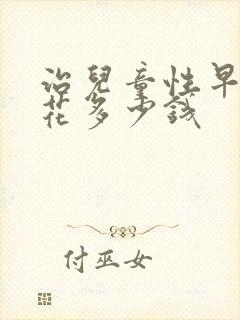 治兒童性早
花多少錢
付巫女